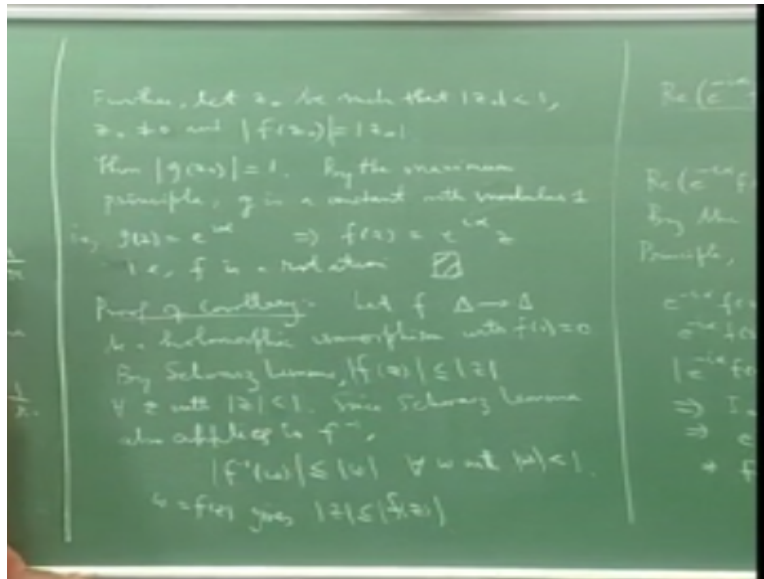 Further, let z₀ be such that |z₀| < 1,
z₀ ≠ 0 and |f(z₀)| = |z₀|
Then |g(z₀)| = 1. By the maximum
principle, g is a constant with modulus 1
i.e., g(z) = e^{iα} ⇒ f(z) = e^{iα} z
i.e., f is a rotation
Proof of Corollary:- Let f Δ → Δ
be a holomorphic isomorphism with f(0) = 0
By Schwarz Lemma, |f(z)| ≤ |z|
∀ z with |z| < 1. Since Schwarz Lemma
also applies to f⁻¹,
|f⁻¹(w)| ≤ |w| ∀ w with |w| < 1.
w = f(z) gives |z| ≤ |f(z)|
Re(e^{-iα}
Re(e^{-iα} f
By the
Principle,
e^{-iα} f(
e^{-iα} f(
|e^{-iα} f
⇒ I
⇒ e
f